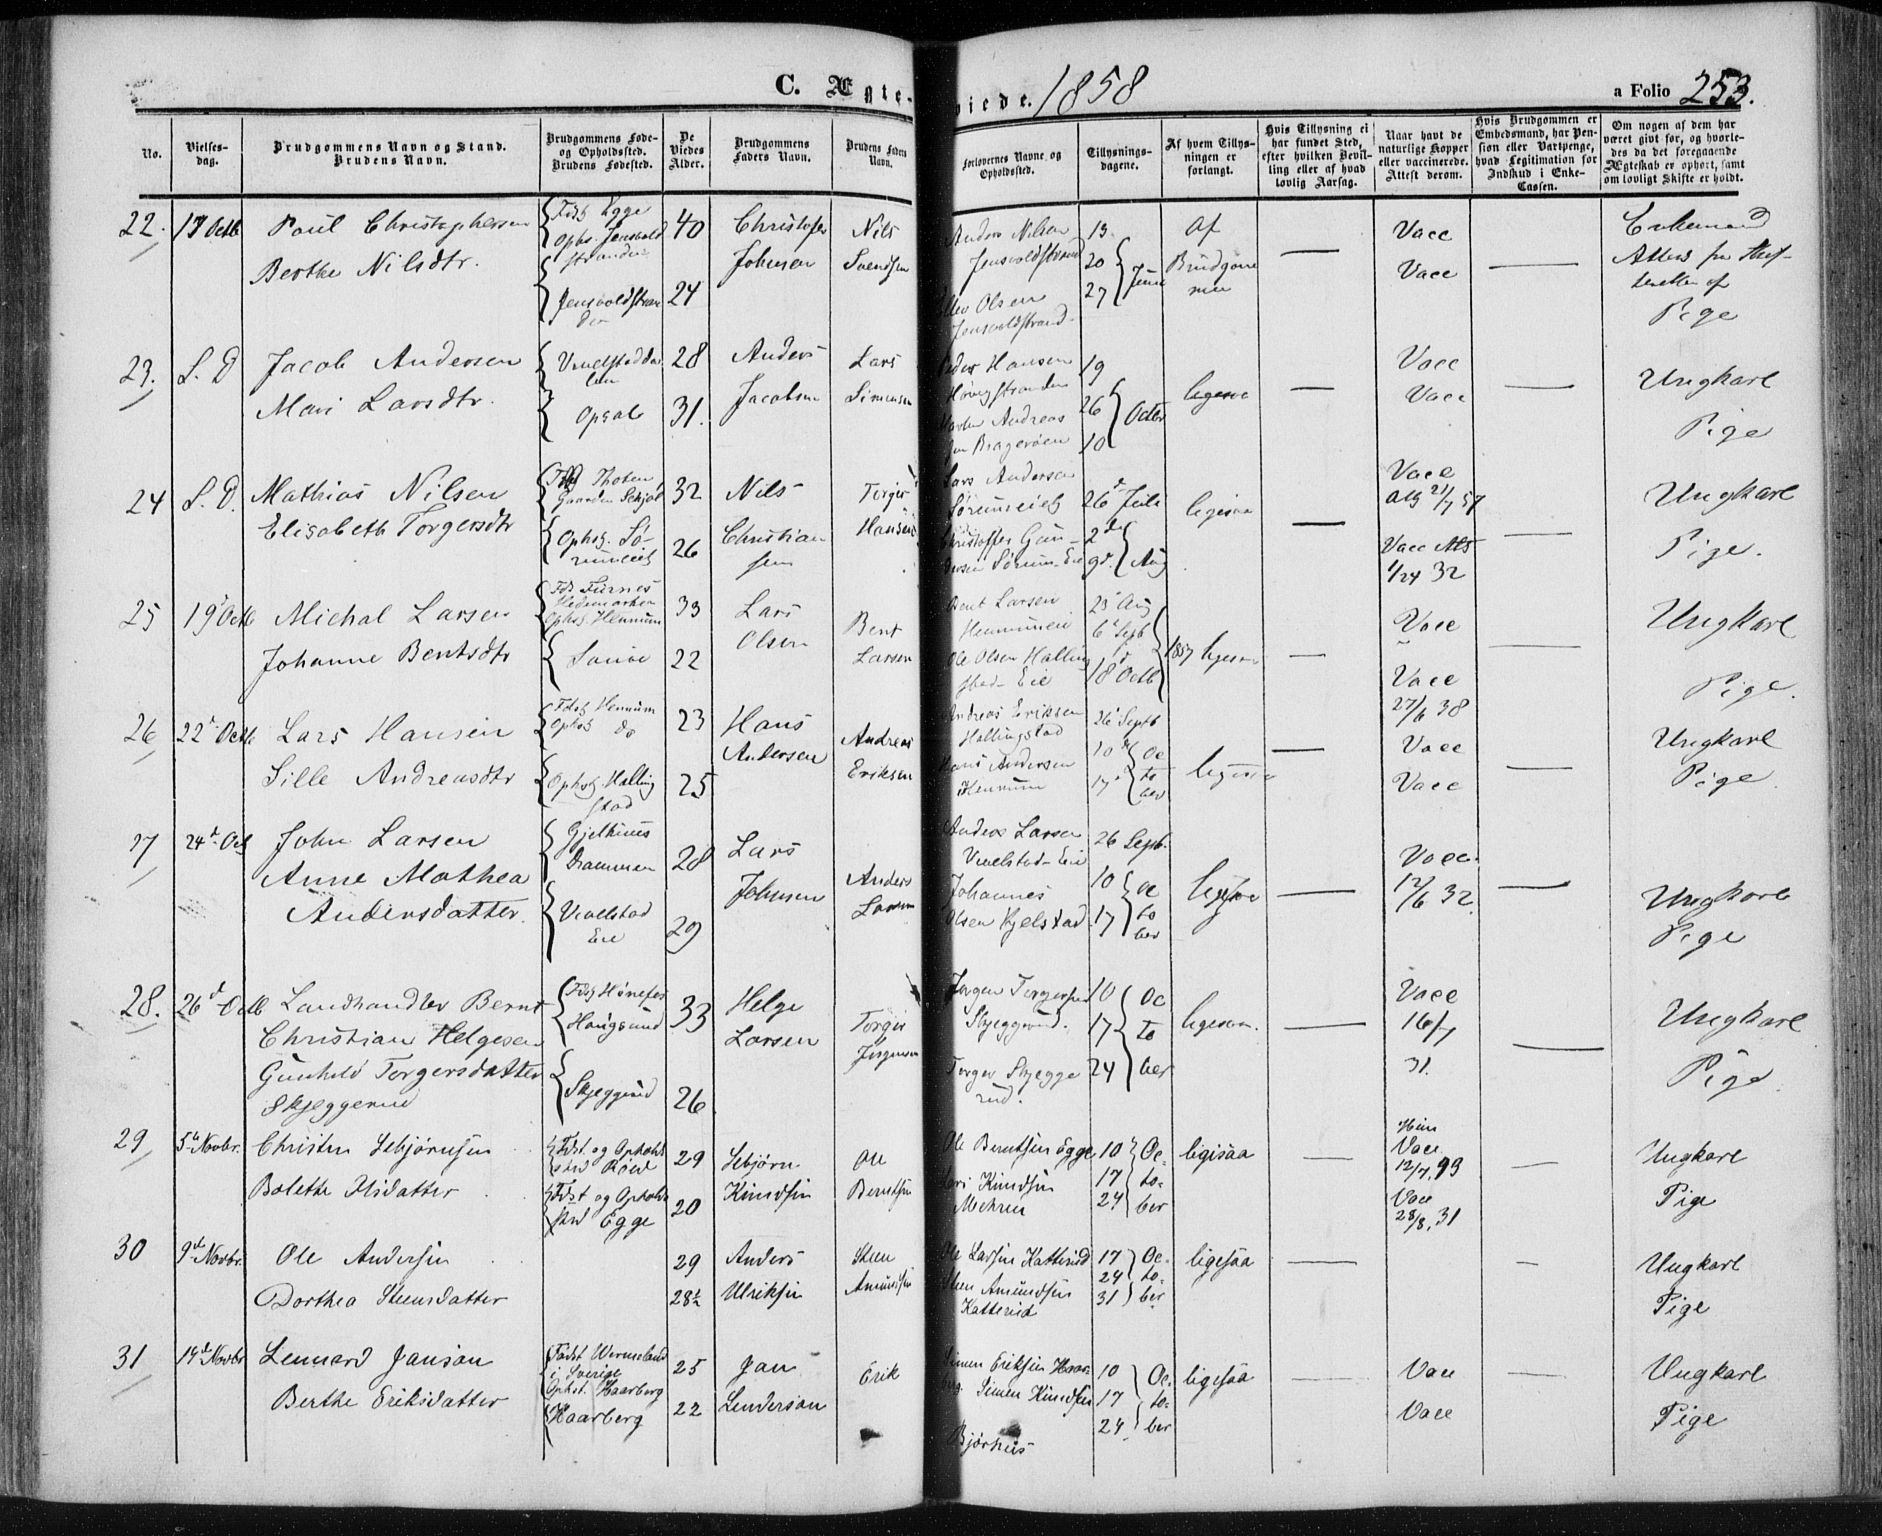 C. Ægte-
viede. 1858
a Folio 253.
No.
Vielses-
dag.
Brudgommens Navn og Stand.
Brudens Navn.
Brudgommens Føde-
og Opholdssted.
Brudens Fødested.
De
Viedes
Alder.
Brudgommens
Faders Navn.
Brudens Faders
Navn.
Forlovernes Navne og
Opholdssted.
Tillysnings-
dagene.
Af hvem Tillys-
ningen er
forlangt.
Hvis Tillysning ei
har fundet Sted,
efter hvilken Bevil-
ling eller af hvad
lovlig Aarsag.
Naar havt de
naturlige Kopper
eller vaccinerede.
Attest derom.
Hvis Brudgommen er
Embedsmand, har Pen-
sion eller Vartpenge,
hvad Legitimation for
Indskud i Enke-
Cassen.
Om nogen af dem har
været givt før, og hvorle-
des da det foregaaende
Ægteskab er ophørt, samt
om lovligt Skifte er holdt.
22. 17 Octb Poul Christophersen
Berthe Nilsdtr.
Fdst Egge
Ophs. Jensvold
stranden
Jensvoldstran
den
40
24
Christofer
Johnsen
Nils
Svendsen
Anders Nilsen
Jensvoldstrand
Olsen
Jensvoldstrand
13.
20
27 Juni
Af
Brudgom
men
Vacc
Vacc
Enkemand
Attest fra Skif-
teretten af
Pige
23. S. D Jacob Andersen
Mari Larsdtr.
Opsal
28
31.
Anders
Jacobsen
Lars
Simensen
Peder Hansen
Andreas
Bragerøen
19
26
10 Octbr
ligesaa
Vacc
Vacc
Ungkarl
Pige
24 S. D. Mathias Nilsen
Elisabeth Torgersdtr
Fdst Thoten
Gaarden
Ophst. Sø-
rumeiet
32
26
Nils
Christian
sen
Torger
Hansen
Lars Andersen
Sørumeiet
Christoffer Gun-
dersen Sørum-Eie
26d Juli
2den
9d. Aug
ligesaa
Vacc
Att 21/7 57
Vacc Att
1/24 32
Ungkarl
Pige.
25 19d Octb Michal Larsen
Johanne Bentsdtr
Fds Furnes
Hedemarken
Ophst Hennum
33
22
Lars
Olsen
Bent
Larsen
Bent Larsen
Hennumeie
Ole Olsen Halling
stad-Eie
23d Aug
6d Septb
18d Octb
1857
ligesaa
Vacc
Vacc
27/6 38
Ungkarl
Pige.
26 22d Octb Lars Hansen
Sille Andreasdtr
Fdst Hennum
Ophst do
Ophst. Halling
stad
23
25
Hans
Andersen
Andreas
Eriksen
Andreas Eriksen
Hallingstad
Hans Andersen
Hennum
26d Septb
10d
17d Oc
to
ber
ligesaa
Vacc
Vacc
Ungkarl
Pige
27 24d Oct John Larsen
Anne Mathea
Andersdatter.
Drammen
Eie
28
29
Lars
Johnsen
Anders
Larsen
Anders Larsen
Johannes
Olsen
26 Septb.
10
17 Oc
to
ber
ligesaa
Vacc.
12/6 32
Ungkarl
Pige
28. 26d Octb Landhandler Bernt
Christian Helgesen
Gunhild Torgersdatter
Skjeggerud
Fdst Hønefos
Hougsund
Skjeggerud
33
26
Helge
Larsen
Torger
Jørgensen
Jørgen Torgersen
Skjeggerud.
Torger Skjegge
rud.
10
17
24 Oc
to
ber
ligesaa.
Vacc
16/7
31.
Ungkarl
Pige
29 5te Novbr. Christen Sebjørnsen
Bolethe Olsdatter
Fdst. og Opholds
sted
Fdst og Opholds
sted Egge
29
20
Sebjørn
Knudsen
Ole
Berntsen
Ole Berntsen Egge
Knudsen
Mehren
10
17
24 Oc-
to-
ber
ligesaa
Vacc
Vacc
28/8, 31
Ungkarl
Pige
30 9d Novbr. Ole Andersen
Dorthea Steensdatter
29
28½
Anders
Ulriksen
Steen
Amundsen
Ole Larsen Katterud
Steen Amundsen
Katterud
17
24
31 Oc-
to-
ber
ligesaa
Ungkarl
Pige
31 14d Novbr Lennard Janson
Berthe Eriksdatter
Fødst Wermeland
i Sverige
Ophst. Haarberg
Haarberg
25
22
Jan
Lenderson
Erik
Simen Eriksen Haar-
berg. Simen Knudsen
Bjørkeis
10
17
24 Oc-
to-
ber
ligesaa
Vacc
Vacc
Ungkarl
Pige